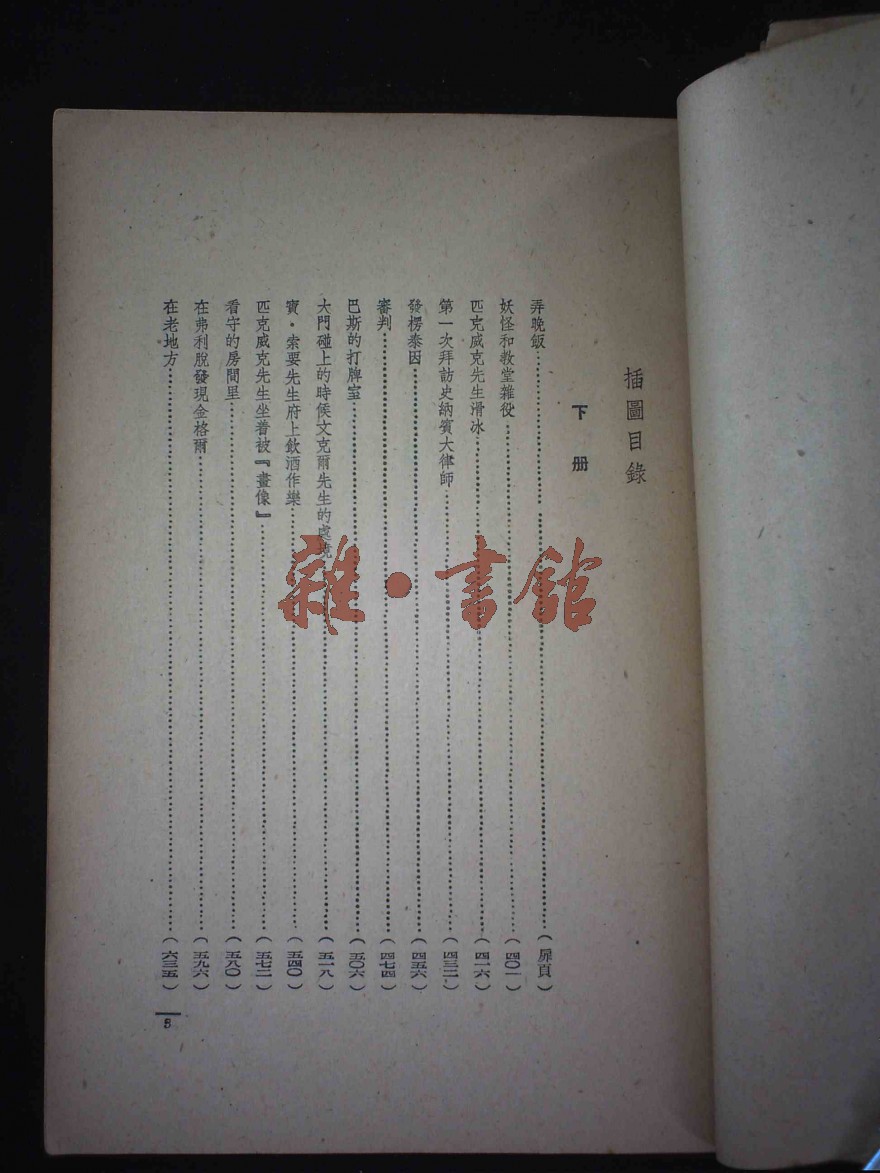 插圖目錄
下册
弄晚飯……(扉頁)
妖怪和教堂雜役……(四〇一)
匹克威克先生滑冰……(四一六)
第一次拜訪史納賓大律師……(四三二)
發楞泰因……(四五六)
審判……(四七四)
巴斯的打牌室……(五〇六)
大門碰上的時候文克爾先生的處境……(五一八)
寶·索要先生府上飲酒作樂……(五四〇)
匹克威克先生坐着被『畫像』……(五七二)
看守的房間里……(五八〇)
在弗利脫發現金格爾……(五九六)
在老地方……(六三五)
雜·書館